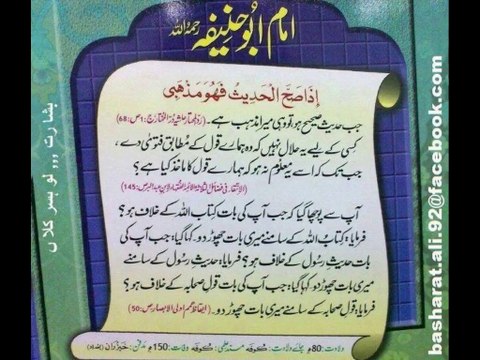 امام ابوحنیفہ رحمہ اللہ
إِذَا صَحَّ الْحَدِيْثُ فَهُوَ مَذْهَبِيْ
جب حدیث صحیح ہو تو وہی میرا مذہب ہے۔ (ردالمحتار حاشیہ درالمختار ج:1 ص:68)
کسی کے لیے یہ حلال نہیں کہ وہ ہمارے قول کے مطابق فتویٰ دے،
جب تک کہ اسے یہ معلوم نہ ہو کہ ہمارے قول کا ماخذ کیا ہے؟
ص:145)
آپ سے پوچھا گیا کہ جب آپ کی بات کتاب اللہ کے خلاف ہو؟
فرمایا: کتاب اللہ کے سامنے میری بات چھوڑ دو۔ کہا گیا: جب آپ کی
بات حدیث رسول کے خلاف ہو؟ فرمایا: حدیث رسول کے سامنے
میری بات چھوڑ دو۔ کہا گیا: جب آپ کی بات قول صحابہ کے خلاف ہو؟
فرمایا: قول صحابہ کے سامنے میری بات چھوڑ دو۔ (ایقاظ ھمم اولی الابصار ص:50)
ولادت: 80ھ جائے ولادت: کوفہ مسند علمی: کوفہ وفات: 150ھ مدفن: خیزران (بغداد)
بشارت ،،، لوہسر کلاں
basharat.ali.92@facebook.com